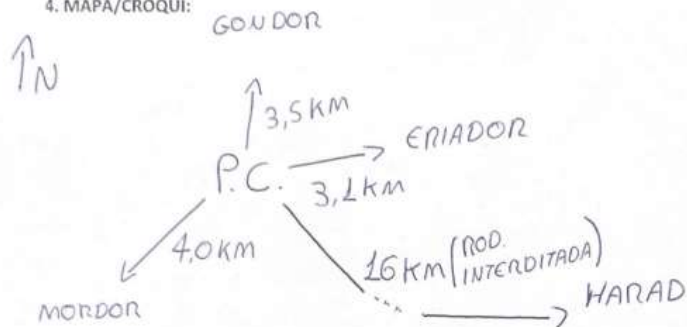 4. MAPA/CROQUI:
GONDOR
N
3,5KM
ERIADOR
P.C.
3,1KM
4,0KM
16KM (ROD. INTERDITADA)
HARAD
MORDOR